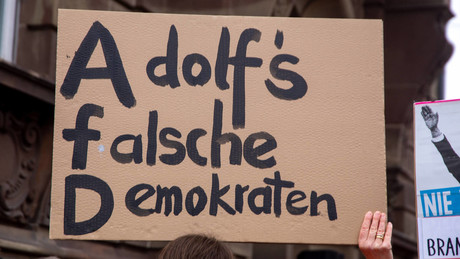 Adolf's
falsche
Demokraten
NIE
BRAN